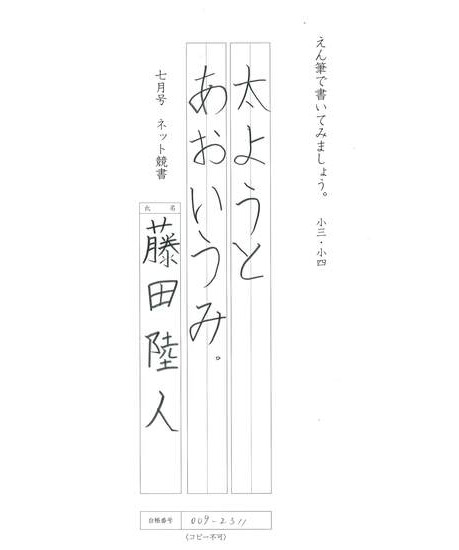 えん筆で書いてみましょう。 小三・小四
太ようと
あおいうみ。
七月号 ネット競書
氏名
藤田陸人
台帳番号 009-2311
(コピー不可)